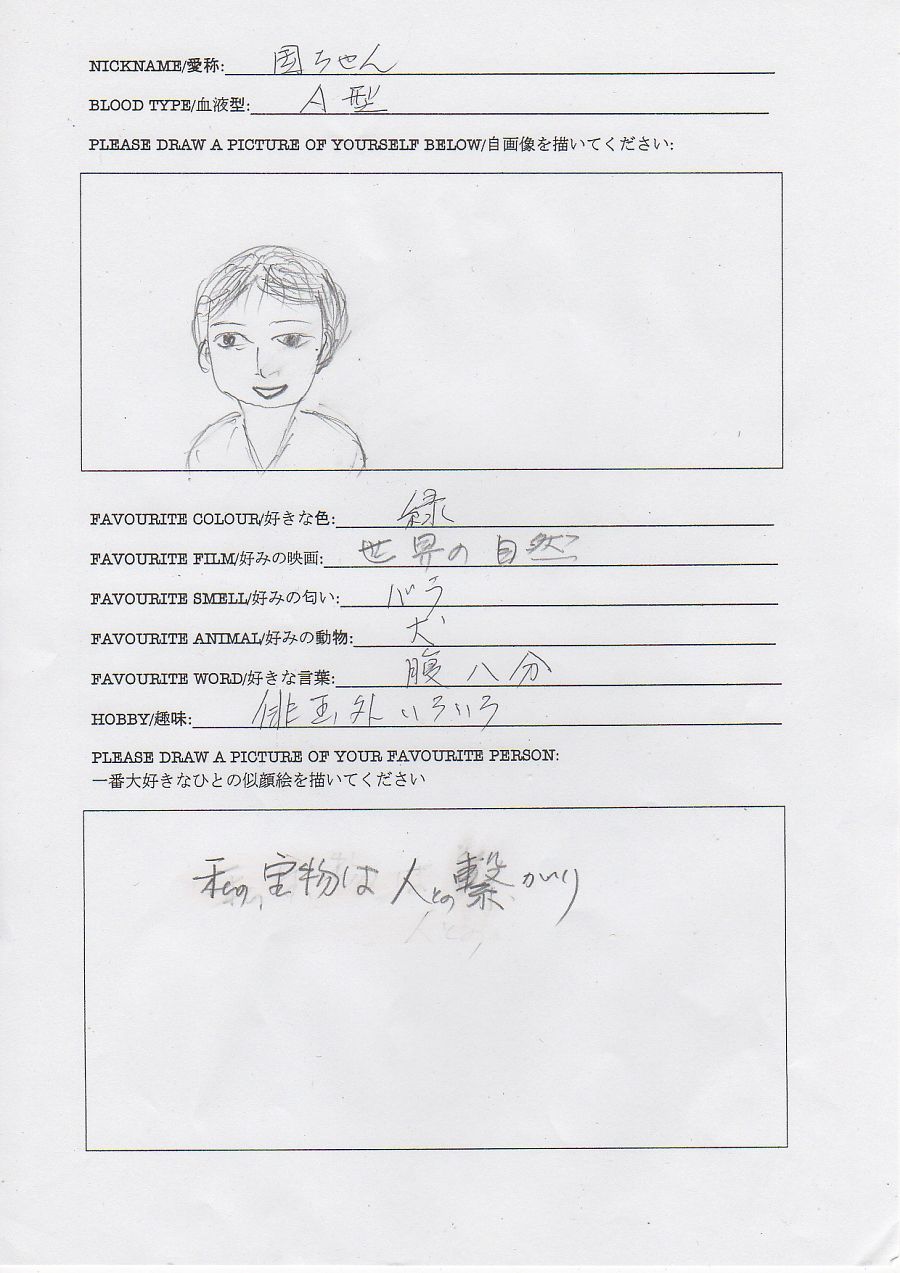 NICKNAME/愛称: 国ちゃん
BLOOD TYPE/血液型: A型
PLEASE DRAW A PICTURE OF YOURSELF BELOW/自画像を描いてください:
FAVOURITE COLOUR/好きな色: 緑
FAVOURITE FILM/好みの映画: 世界の自然
FAVOURITE SMELL/好みの匂い: バラ
FAVOURITE ANIMAL/好みの動物: 犬
FAVOURITE WORD/好きな言葉: 腹八分
HOBBY/趣味: 俳画外いろいろ
PLEASE DRAW A PICTURE OF YOUR FAVOURITE PERSON:
一番大好きなひとの似顔絵を描いてください
私の宝物は人との繋がり